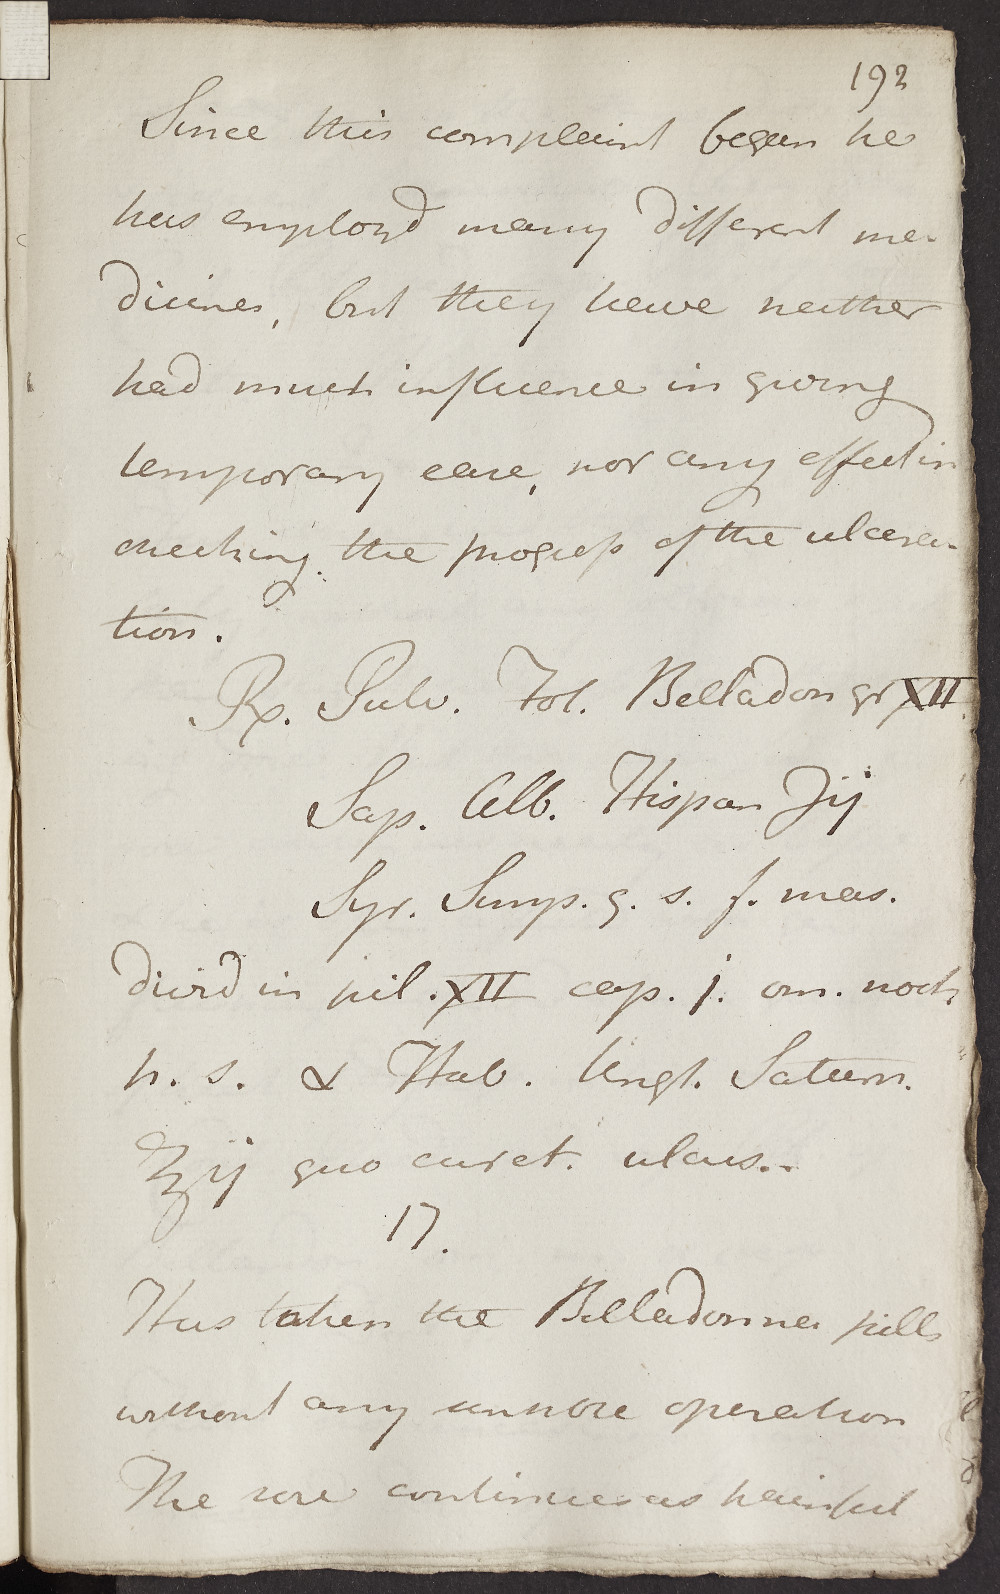 192
Since this complaint began he
has employd many different me-
dicines, but they have neither
had much influence in giving
temporary ease, nor any effect in
checking the progress of the ulcera-
tion.
Rx. Pulv. Fol. Belladon gr XII
Sap. Alb. Hispan ʒij
Syr. Simp. q. s. f. mas.
divid in pil. XII cap. j. om. noct.
h. s. & Hab. Ungt. Saturn.
℥ij quo curet. ulcus..
17.
Has taken the Belladonna pills
without any sensible operation
The sore continues as painful